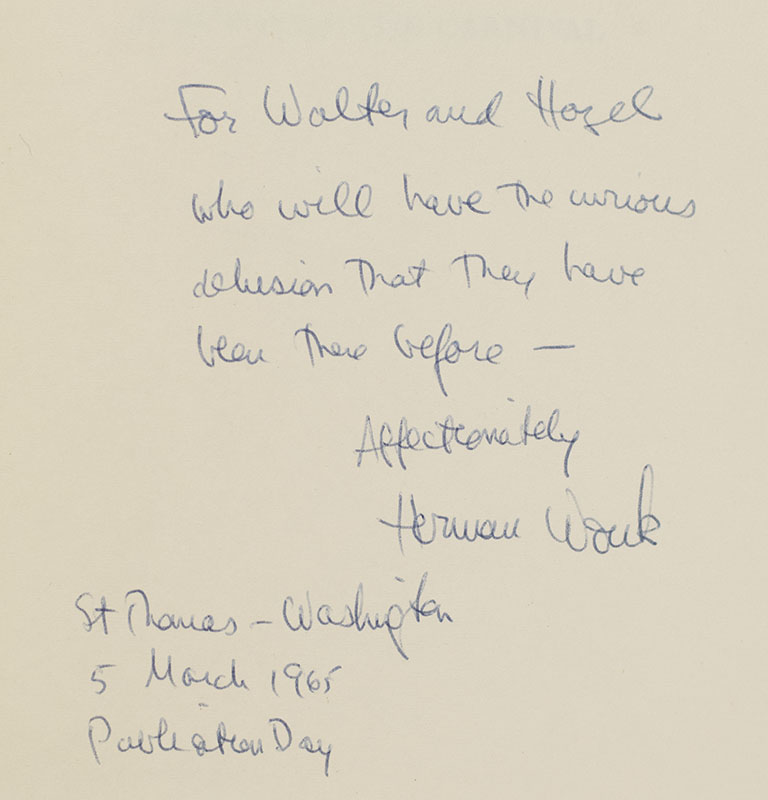 For Walter and Hazel
who will have the curious
delusion that they have
been there before —
Affectionately
Herman Wouk
St Thomas – Washington
5 March 1965
Publication Day